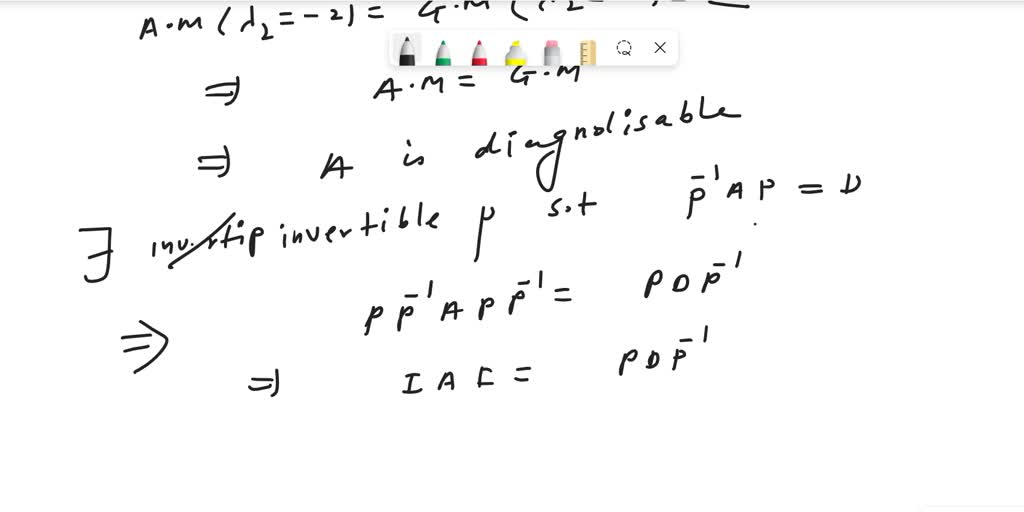 A.M (λ₂ = -2) = G.M (λ₂ =
⇒ A.M = G.M
⇒ A is diagnolisable
∃ invertible P s.t P⁻¹AP = D
⇒ P P⁻¹ A P P⁻¹ = P D P⁻¹
⇒ I A I = P D P⁻¹